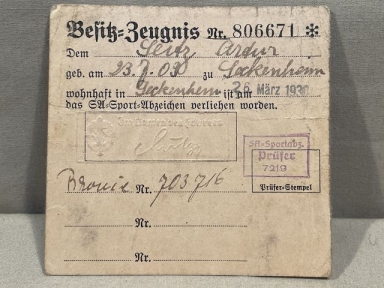 Besitz-Zeugnis Nr. 806671 ✻
Dem Seitz Artur
geb. am 23.7.03 zu Seckenheim
wohnhaft in Seckenheim ist am 26. März 193
das SA-Sport-Abzeichen verliehen worden.
Im Namen des Führers
SA-Sportabz.
Prüfer
7219
Prüfer-Stempel
Bronze Nr. 703716
Nr.
Nr.